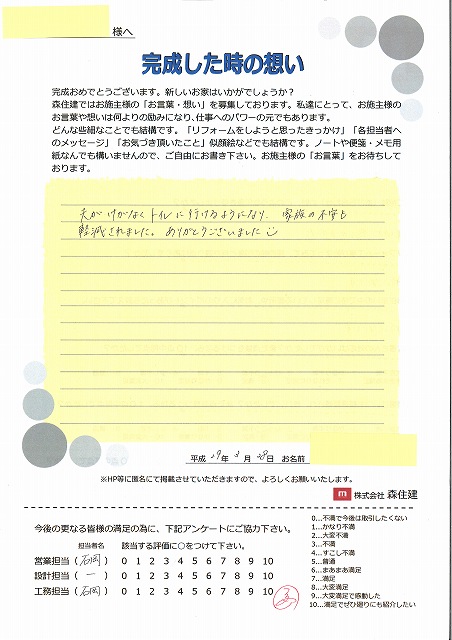 様へ
完成した時の想い
完成おめでとうございます。新しいお家はいかがでしょうか？
森住建ではお施主様の「お言葉・想い」を募集しております。私達にとって、お施主様の
お言葉や想いは何よりの励みになり、仕事へのパワーの元でもあります。
どんな些細なことでも結構です。「リフォームをしようと思ったきっかけ」「各担当者へ
のメッセージ」「お気づき頂いたこと」似顔絵などでも結構です。ノートや便箋・メモ用
紙なんでも構いませんので、ご自由にお書き下さい。お施主様の「お言葉」をお待ちして
おります。
夫がけがなくトイレに行けるようになり、家族の不安も
軽減されました。ありがとうございました
平成 29年 3月 28日 お名前
※HP等に匿名にて掲載させていただきますので、よろしくお願いいたします。
m 株式会社 森住建
今後の更なる皆様の満足の為に、下記アンケートにご協力下さい。
担当者名 該当する評価に○をつけて下さい。
営業担当（石岡） 0 1 2 3 4 5 6 7 8 9 10
設計担当（ー） 0 1 2 3 4 5 6 7 8 9 10
工務担当（石岡） 0 1 2 3 4 5 6 7 8 9 10
0…不満で今後は取引したくない
1…かなり不満
2…大変不満
3…不満
4…すこし不満
5…普通
6…まあまあ満足
7…満足
8…大変満足
9…大変満足で感動した
10…満足でぜひ廻りにも紹介したい